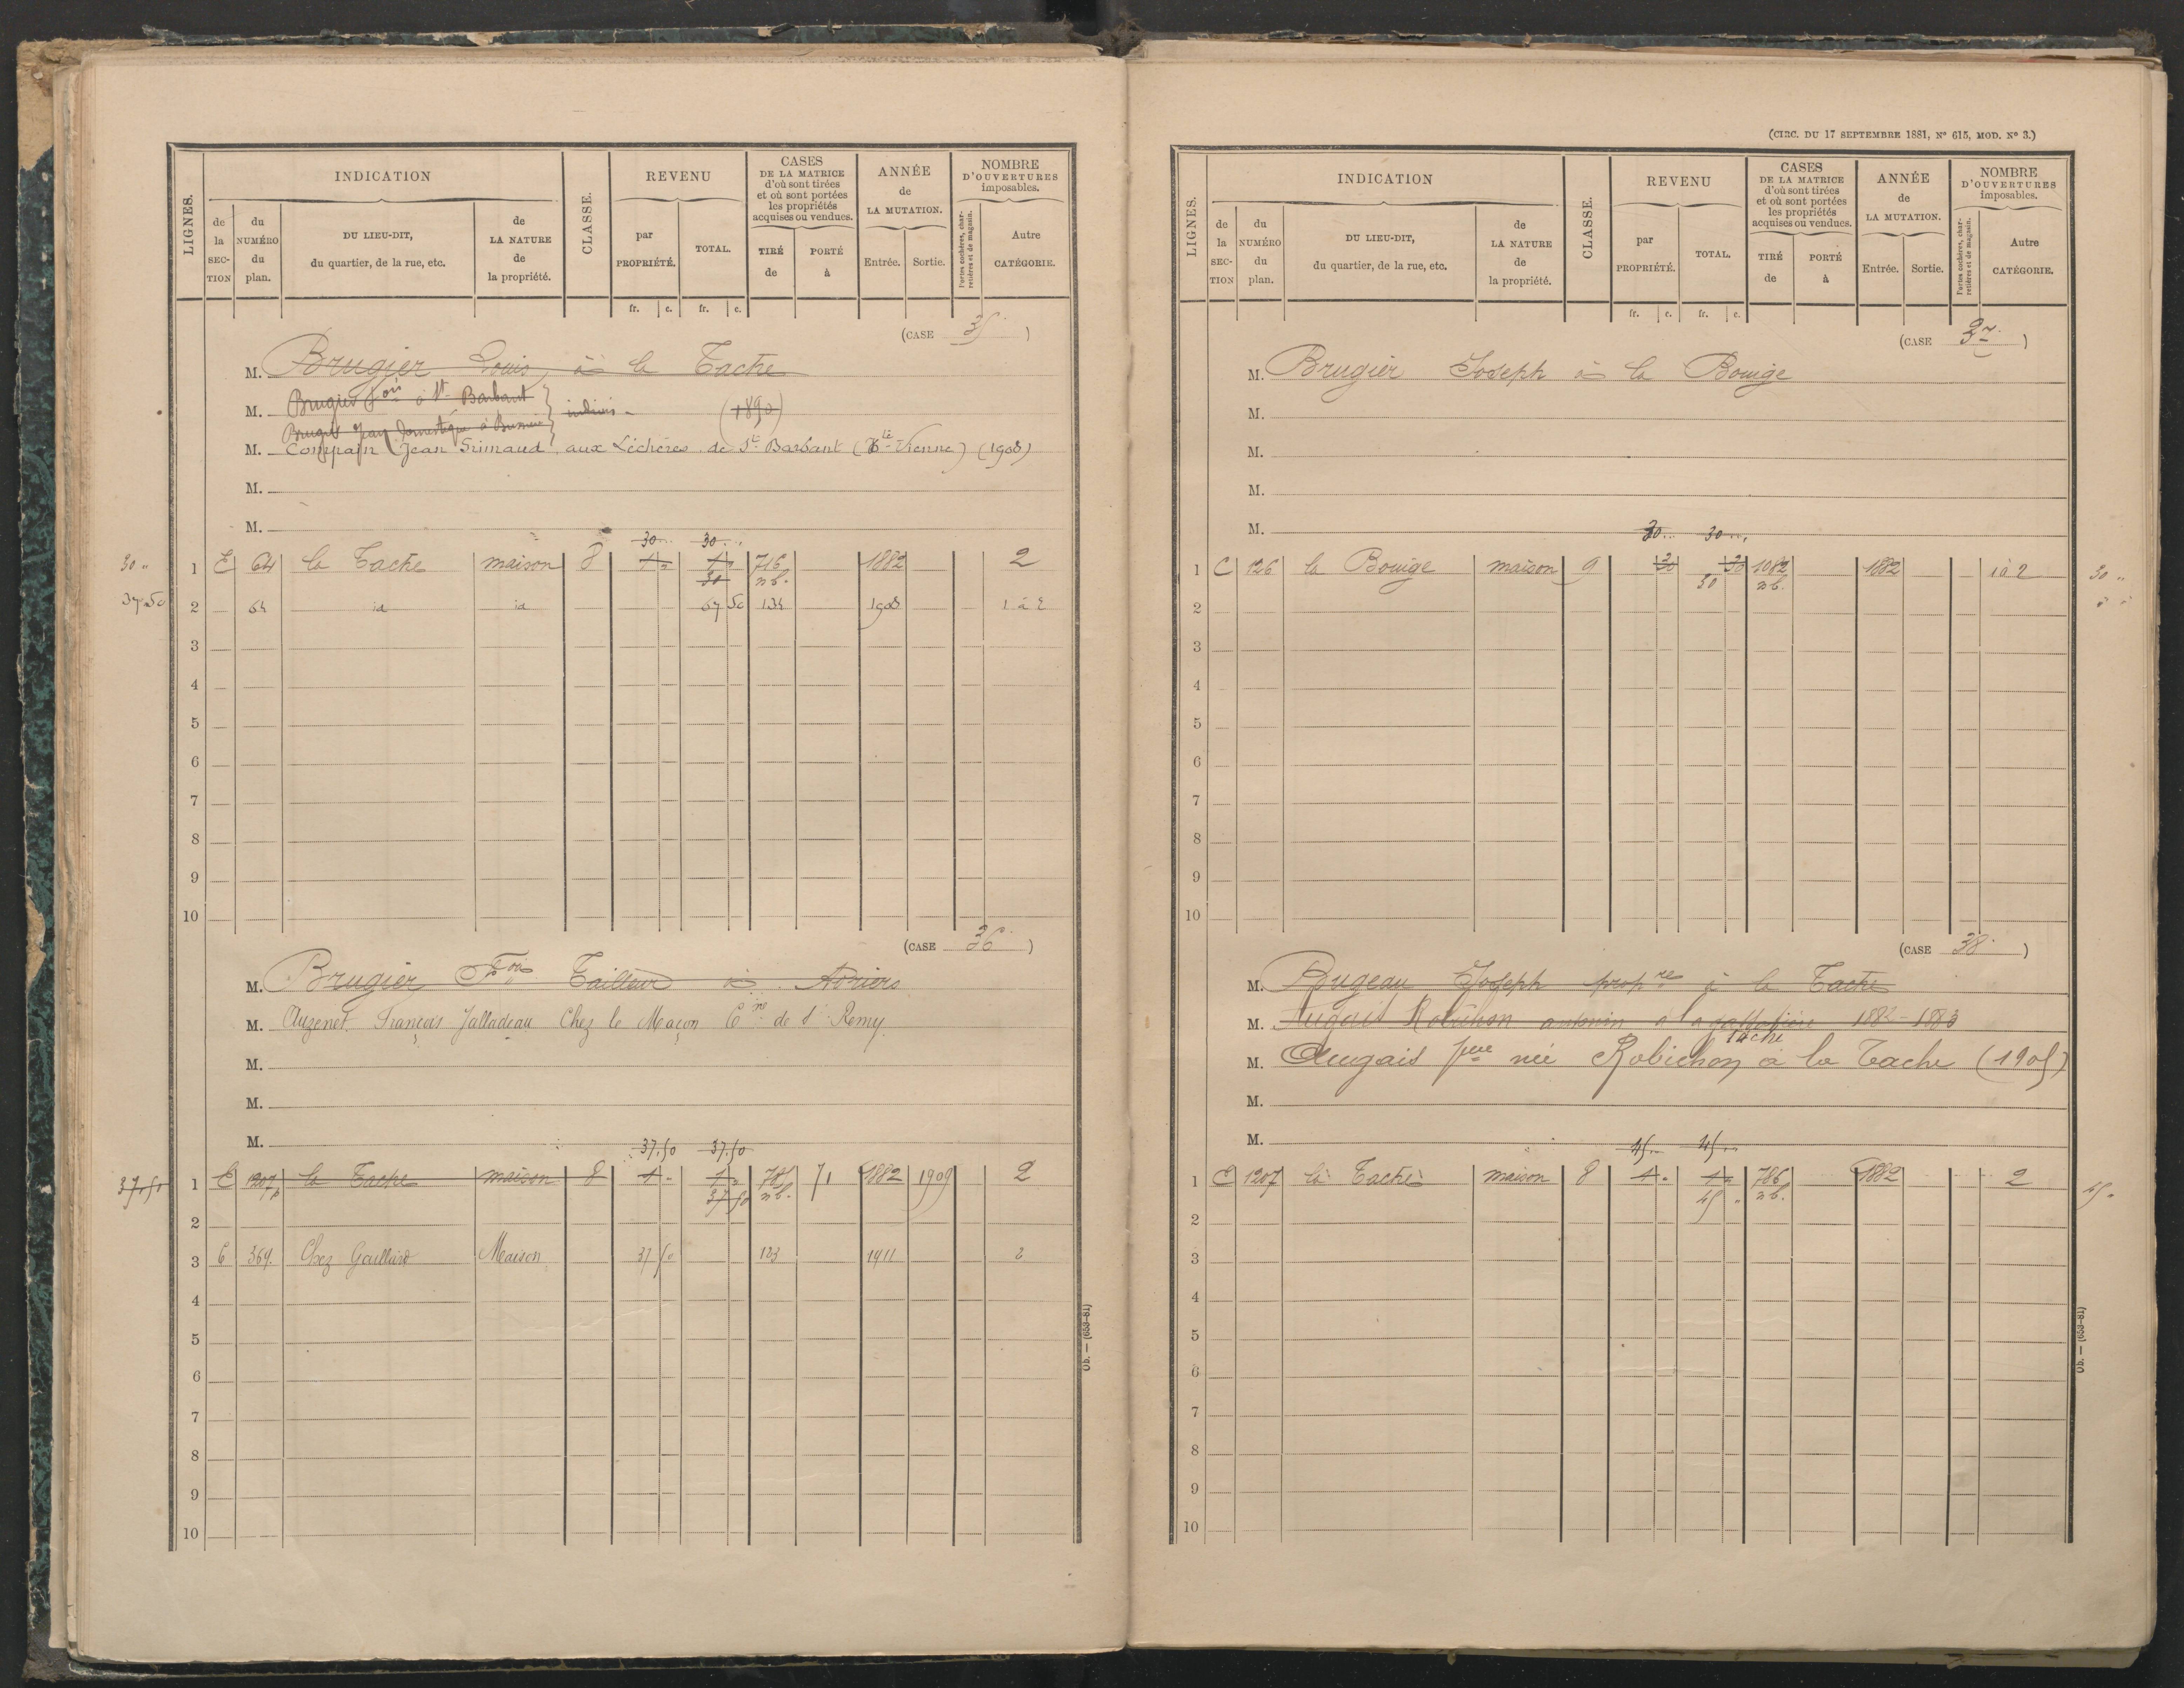 LIGNES.
INDICATION
de la SECTION
du NUMÉRO du plan.
DU LIEU-DIT, du quartier, de la rue, etc.
de LA NATURE de la propriété.
CLASSE.
REVENU
par PROPRIÉTÉ.
TOTAL.
CASES DE LA MATRICE d'où sont tirées et où sont portées les propriétés acquises ou vendues.
TIRÉ de
PORTÉ à
ANNÉE de LA MUTATION.
Entrée.
Sortie.
NOMBRE D'OUVERTURES imposables.
Portes cochères, charretières et de magasin.
Autre CATÉGORIE.
fr. c. fr. c.
(CASE 35 )
M. Brugier Louis à la Tache
M. Brugier Fois à St Barbant } indivis (1890)
Brugier Jean domestique à
M. Compain Jean Grimaud aux Lécheres de St Barbant (Hte Vienne) (1908)
M.
M.
30 30
30 " 1 E 64 la Tache maison 8 1 " 1 " 716 1882 2
30 nb.
37.50 2 64 id id 67 50 134 1908 1 à 2
3
4
5
6
7
8
9
10
(CASE 36 )
M. Brugier Fois Tailleur à Adriers
M. Auzenet François Jalladeau Chez le Maçon Cne de St Remy
M.
M.
M.
37.50 37.50
37.50 1 E 1207p la Tache maison 8 1 " 1 " 785 71 1882 1909 2
37 50 nb.
2
3 C 369 Chez Gaillard Maison 37 50 123 1911 2
4
5
6
7
8
9
10
Ob. — (653-81)
(CIRC. DU 17 SEPTEMBRE 1881, No 615, MOD. No 3.)
LIGNES.
INDICATION
de la SECTION
du NUMÉRO du plan.
DU LIEU-DIT, du quartier, de la rue, etc.
de LA NATURE de la propriété.
CLASSE.
REVENU
par PROPRIÉTÉ.
TOTAL.
CASES DE LA MATRICE d'où sont tirées et où sont portées les propriétés acquises ou vendues.
TIRÉ de
PORTÉ à
ANNÉE de LA MUTATION.
Entrée.
Sortie.
NOMBRE D'OUVERTURES imposables.
Portes cochères, charretières et de magasin.
Autre CATÉGORIE.
fr. c. fr. c.
(CASE 37 )
M. Brugier Joseph à la Bouige
M.
M.
M.
M.
30 30
1 C 126 la Bouige maison 9 20 20 1082 1882 1 à 2 30 "
30 nb.
2
3
4
5
6
7
8
9
10
(CASE 38 )
M. Bugeau Joseph propre à la Tache
M. Augais Robichon antonin a la 1882-1883
tache
M. Augais Jean née Robichon à la Tache (1905)
M.
M.
45 45
1 E 1207 la Tache maison 8 1 " 1 " 786 1882 2 45 "
45 " nb.
2
3
4
5
6
7
8
9
10
Ob. — (653-81)